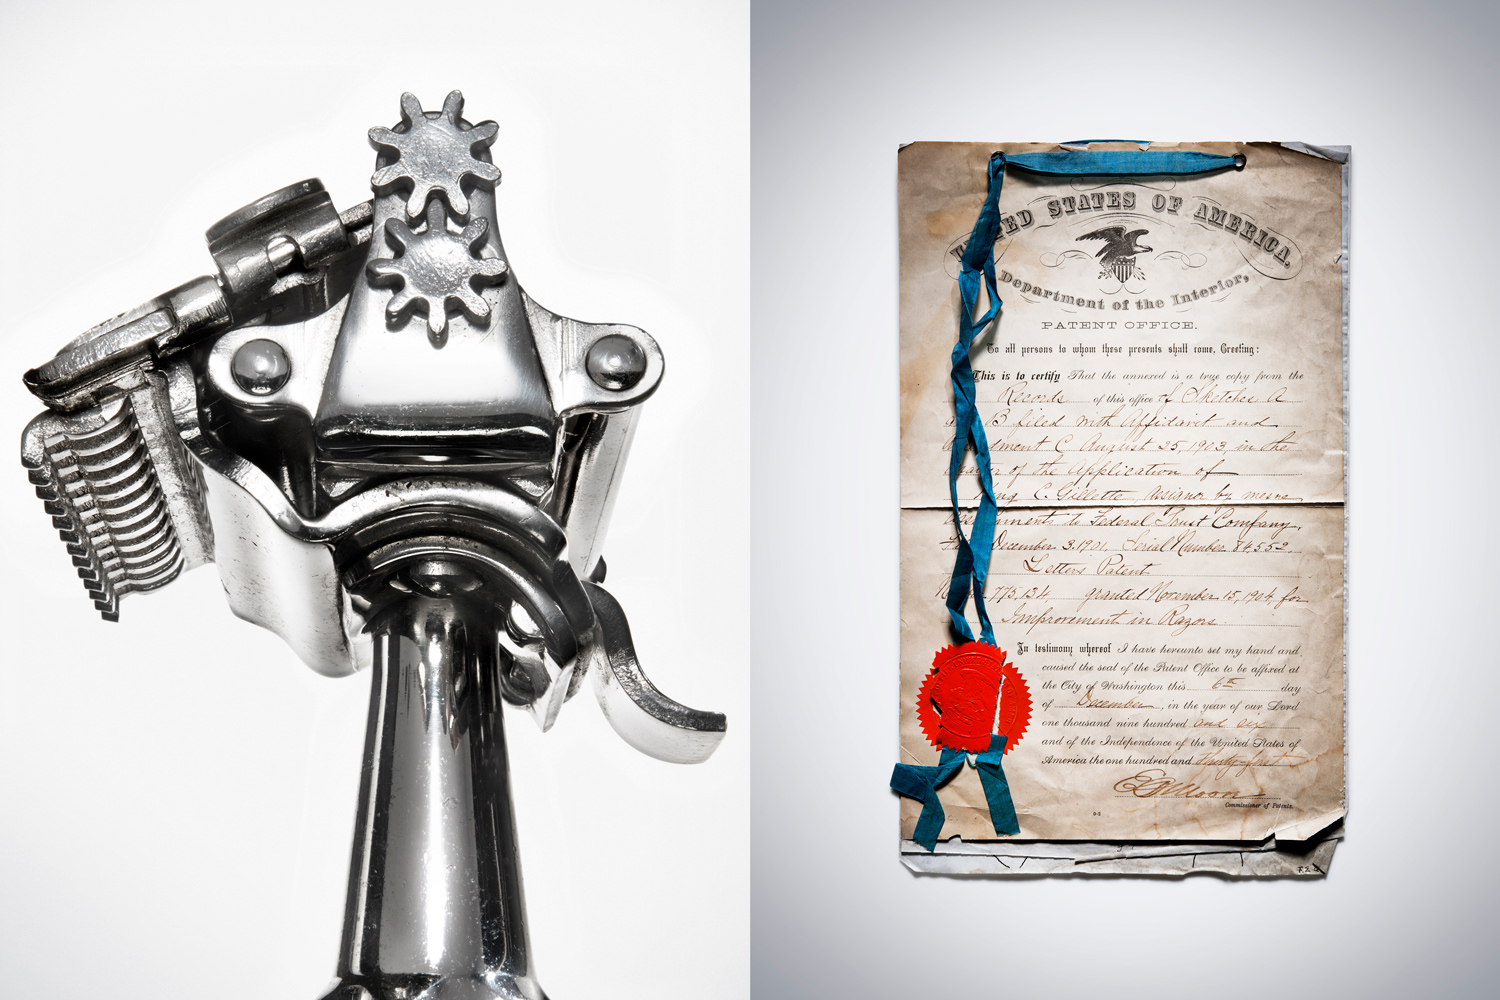 UNITED STATES OF AMERICA.
Department of the Interior,
PATENT OFFICE.
To all persons to whom these presents shall come, Greeting:
This is to certify That the annexed is a true copy from the
Records of this office of Sketches A
B filed with Affidavit and
C August 25, 1903, in the
matter of the application of
King C. Gillette, assignor by mesne
assignments to Federal Trust Company,
December 3, 1901, Serial Number 84,552,
Letters Patent
775,134, granted November 15, 1904, for
Improvement in Razors.
In testimony whereof I have hereunto set my hand and
caused the seal of the Patent Office to be affixed at
the City of Washington this 6th day
of December, in the year of our Lord
one thousand nine hundred and six
and of the Independence of the United States of
America the one hundred and thirty-first
Commissioner of Patents.